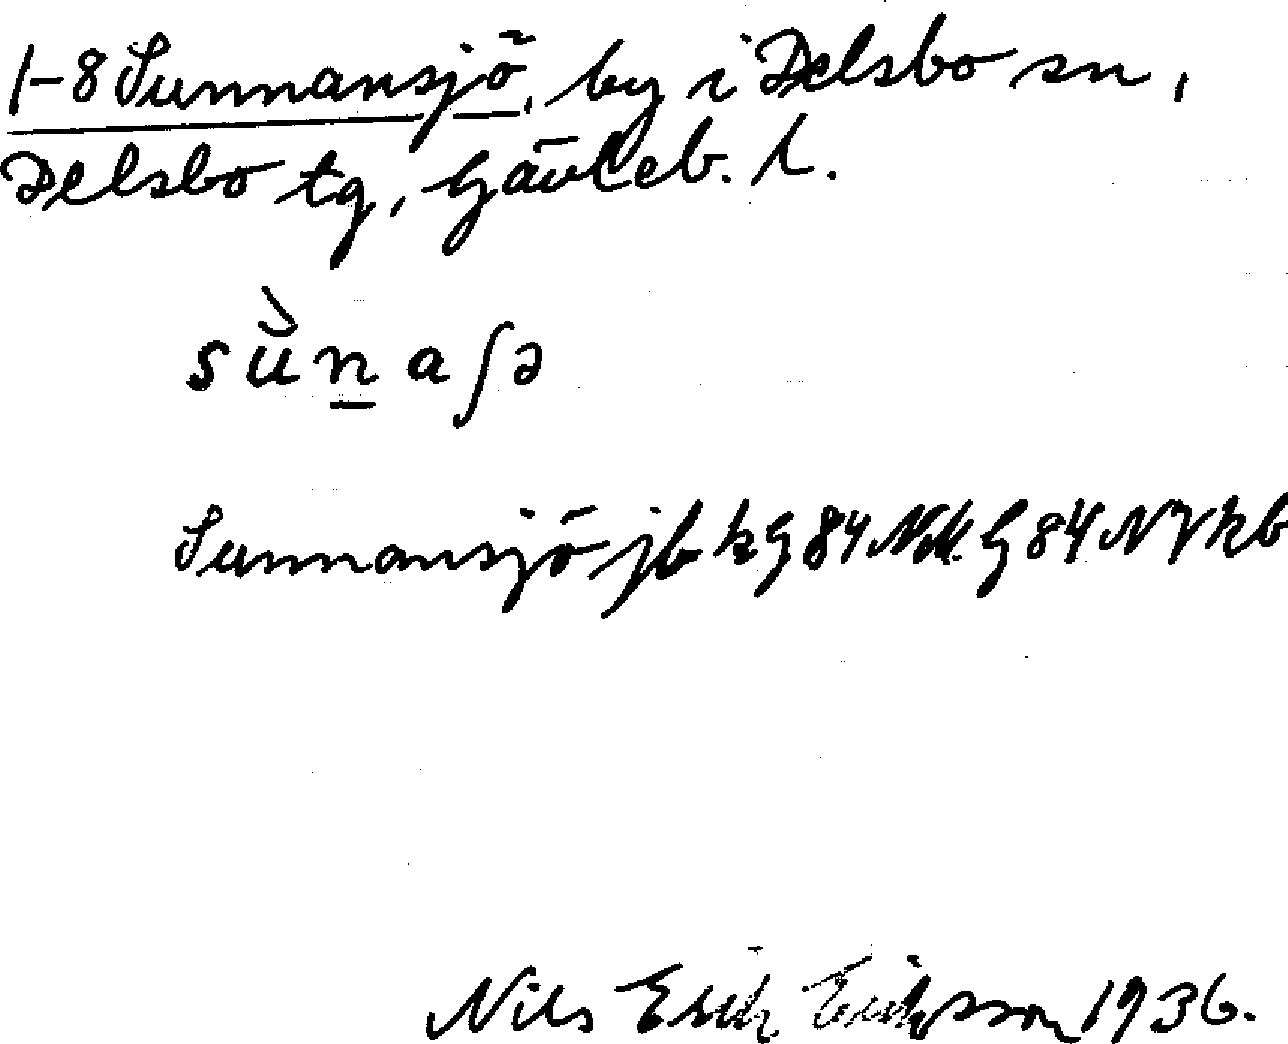 1-8 Sunnansjö, by i Delsbo sn,
Delsbo tg, Gävleb. l.
sùn̲aʃə
Sunnansjö jb kg 84 Nr
Nils Erik Eriksson 1936.